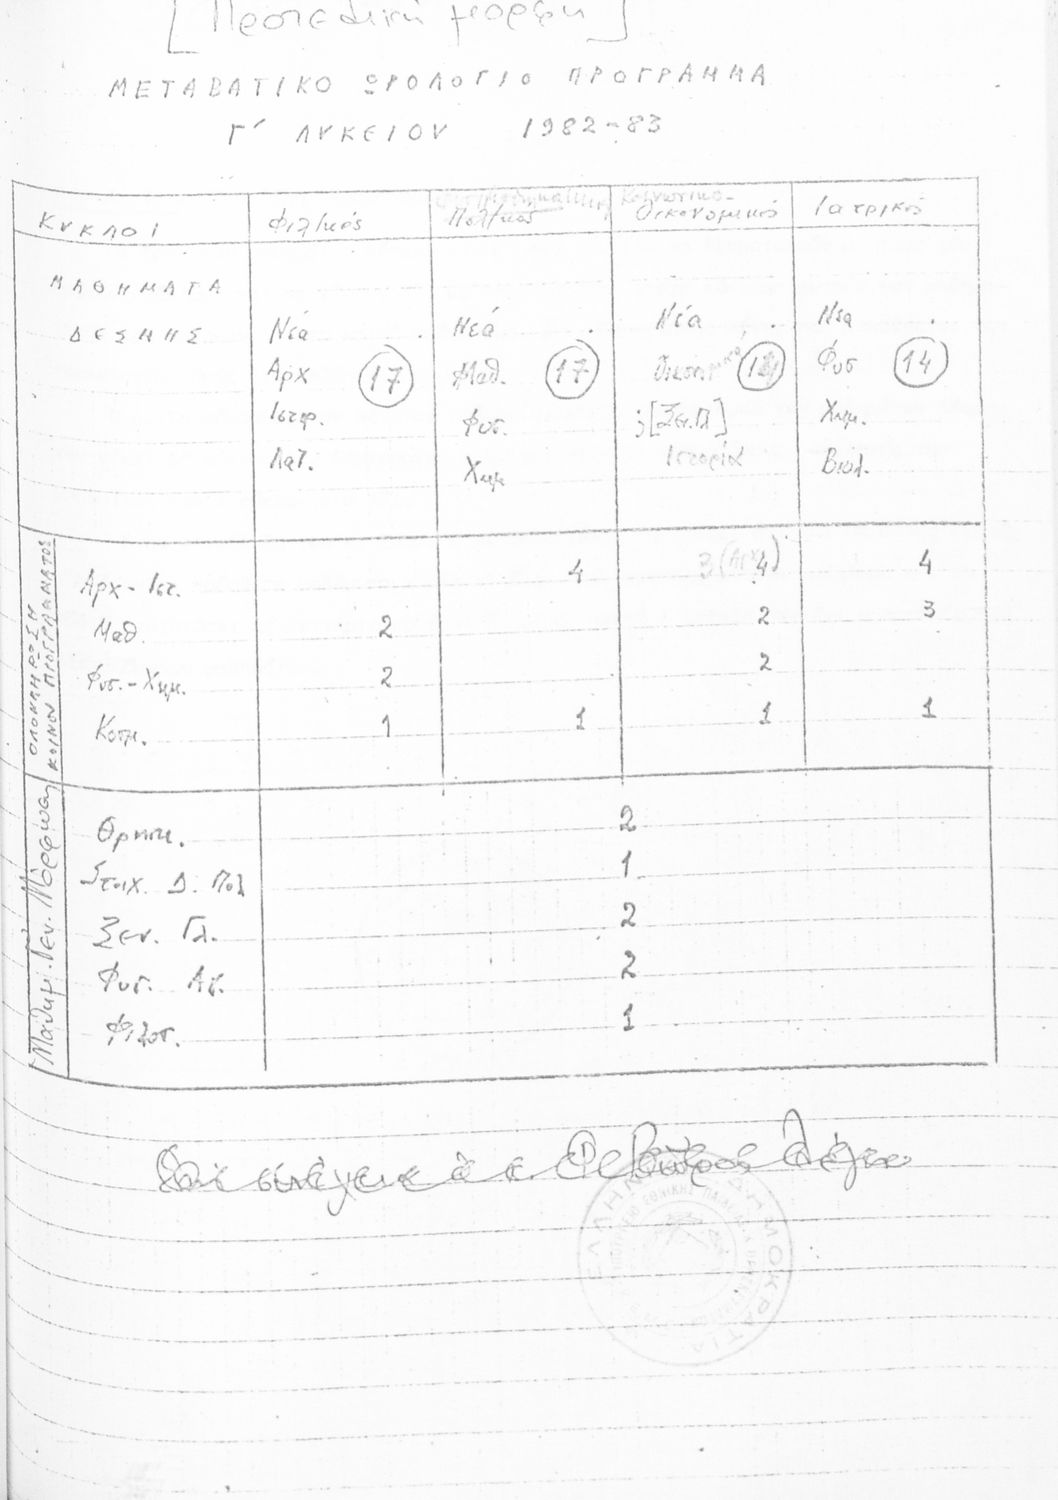 [Προσεδική μορφή]
ΜΕΤΑΒΑΤΙΚΟ ΩΡΟΛΟΓΙΟ ΠΡΟΓΡΑΜΜΑ
Γ΄ ΛΥΚΕΙΟΥ 1982-83
ΚΥΚΛΟΙ Φιλ/κός Πολ/κός Κοινωνικο- Οικονομικός Ιατρικός
ΜΑΘΗΜΑΤΑ
ΔΕΣΜΗΣ Νέα Νεά Νέα Νεα
Αρχ 17 Μαθ. 17 Φυσ 14
Ιστορ. Φυσ. ;[Ξεν.Γλ] Χημ.
Λατ. Χημ Ιστορία Βιολ.
ΟΛΟΚΛΗΡΩΣΗ
ΚΟΙΝΟΥ ΠΡΟΓΡΑΜΜΑΤΟΣ
Αρχ-Ιστ. 4 3(Αρχ) 4 4
Μαθ. 2 2 3
Φυσ.-Χημ. 2 2
Κοσμ. 1 1 1 1
Μαθημ. Γεν. Μόρφωσ
Θρησκ. 2
Στοιχ. Δ. Πολ 1
Ξεν. Γλ. 2
Φυσ. Αγ. 2
Φιλοσ. 1
ΕΛΛΗΝΙΚΗ ΔΗΜΟΚΡΑΤΙΑ